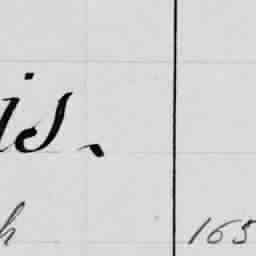 is.
h 165